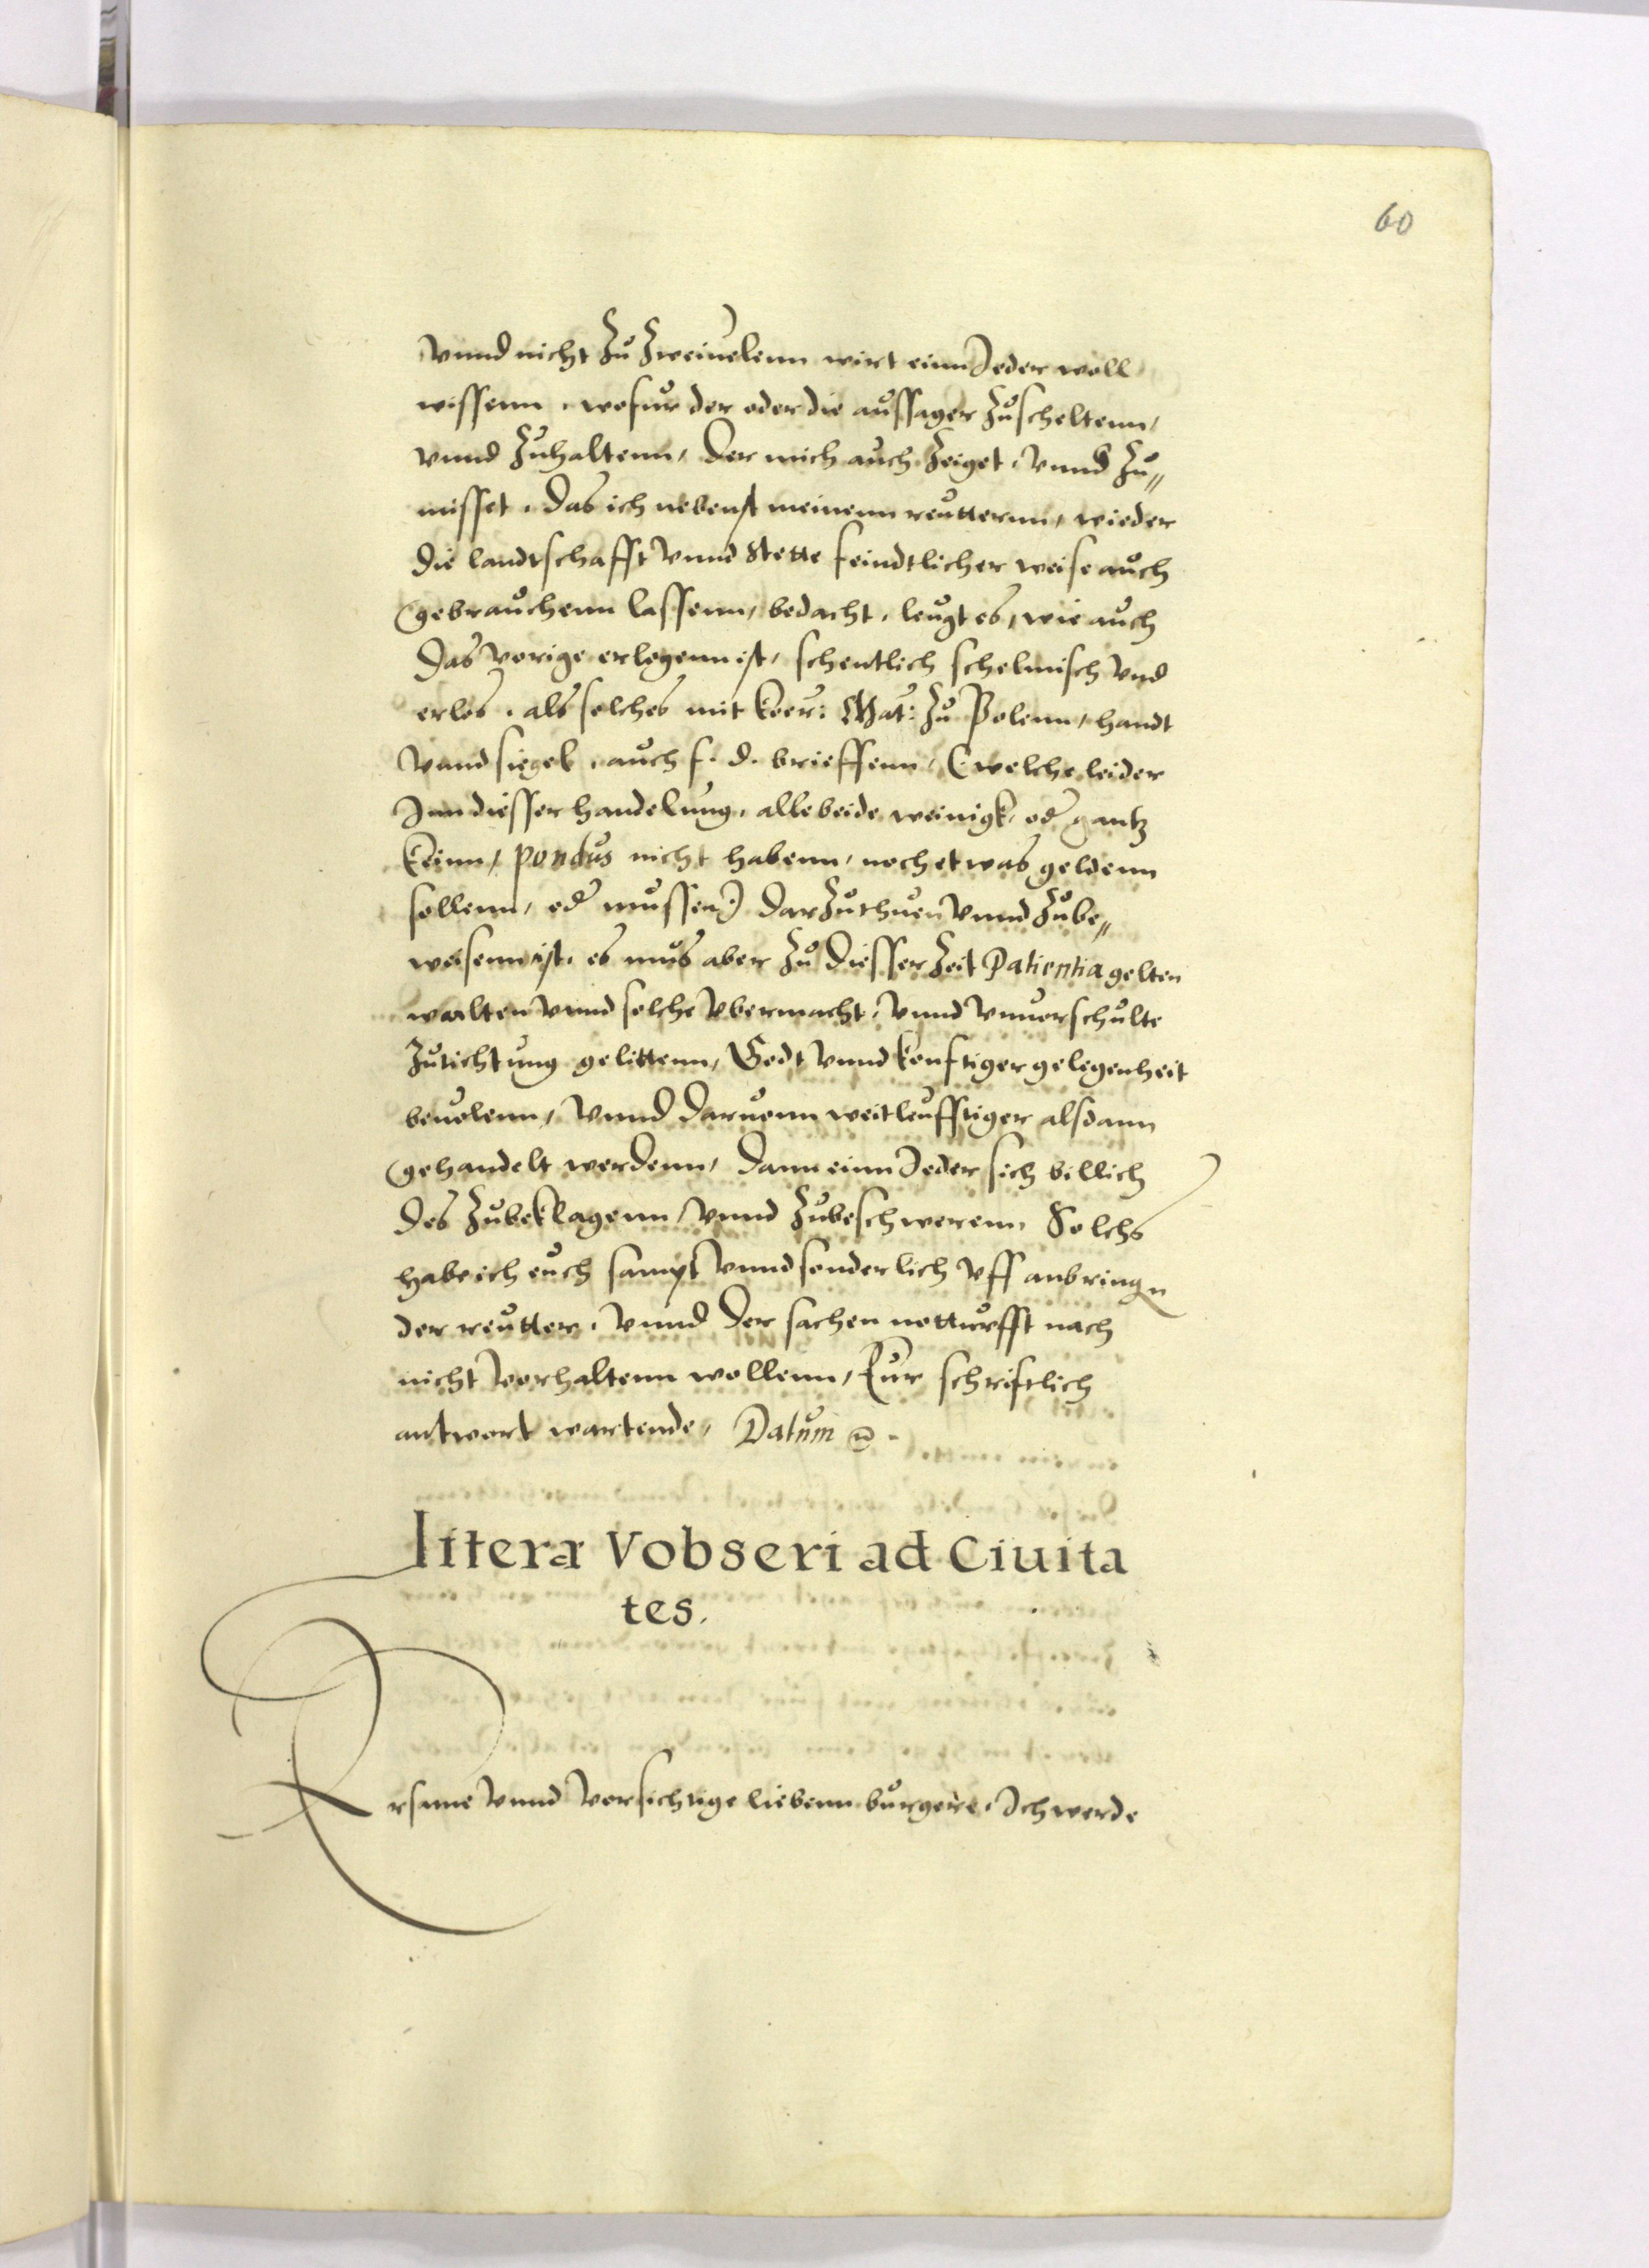 60
vnnd nicht Zu Zweiuelenn wirt einn Jeder woll
wissenn, wofur der oder die aussager Zuscheltenn,
vnnd Zuhaltenn, Der mich auch Zeiget, vnnd Zu„
misset, Das ich nebenst meinenn reutternn, wieder
die landtschafft vnnd Stette feindtlicher weise auch
gebrauchenn lassenn, bedacht, leugt es, wie auch
Das vorige erlogenn ist, schentlich schelmisch vnd
erlos, als solches mit koer: Mat: Zu Polenn, handt
vnnd siegel, auch f. d. brieffenn, (welche leider
Jnn diesser handelung, alle beide weinigk, od gantz
keinn, pondus nicht habenn, noch etwas geldenn
sollenn, od mussen) dar Zuthuen vnnd Zube„
weisenn ist, es mus aber Zu diesser Zeit Patientia gelten
walten vnnd solche vbermacht, vnnd vnuerschulte
Zutichtung gelittenn, Godt vnnd konftiger gelegenheit
beuolenn, vnnd daruonn weitleufftiger alsdann
gehandelt werdenn, Dann einn Jeder sich billich
des Zubeklagenn, vnnd Zubeschwerenn, Solchs
habe ich euch sampt vnnd sonderlich vff anbringn
der reutter, vnnd der sachen notturfft nach
nicht vorhaltenn wollenn, Eur schriftlich
antwort wartende, Datum
litera Vobseri ad Ciuita
tes.
Ersame vnnd vorsichtige liebenn burgere, Ich werde